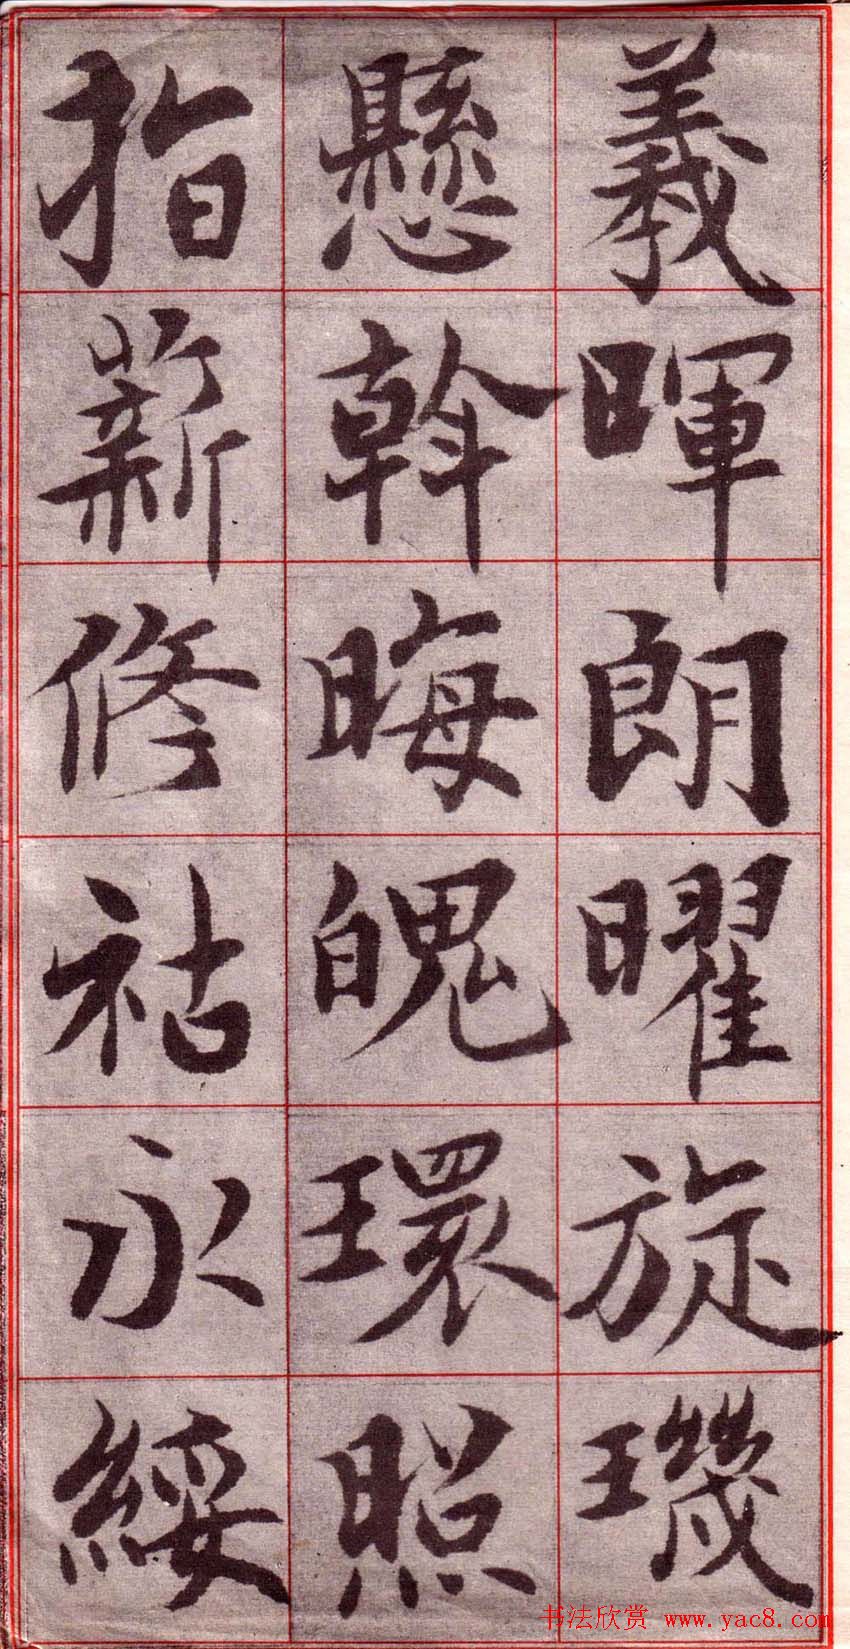 羲暉朗曜旋璣
懸斡晦魄環照
指薪修祜永綏
书法欣赏 www.yac8.com